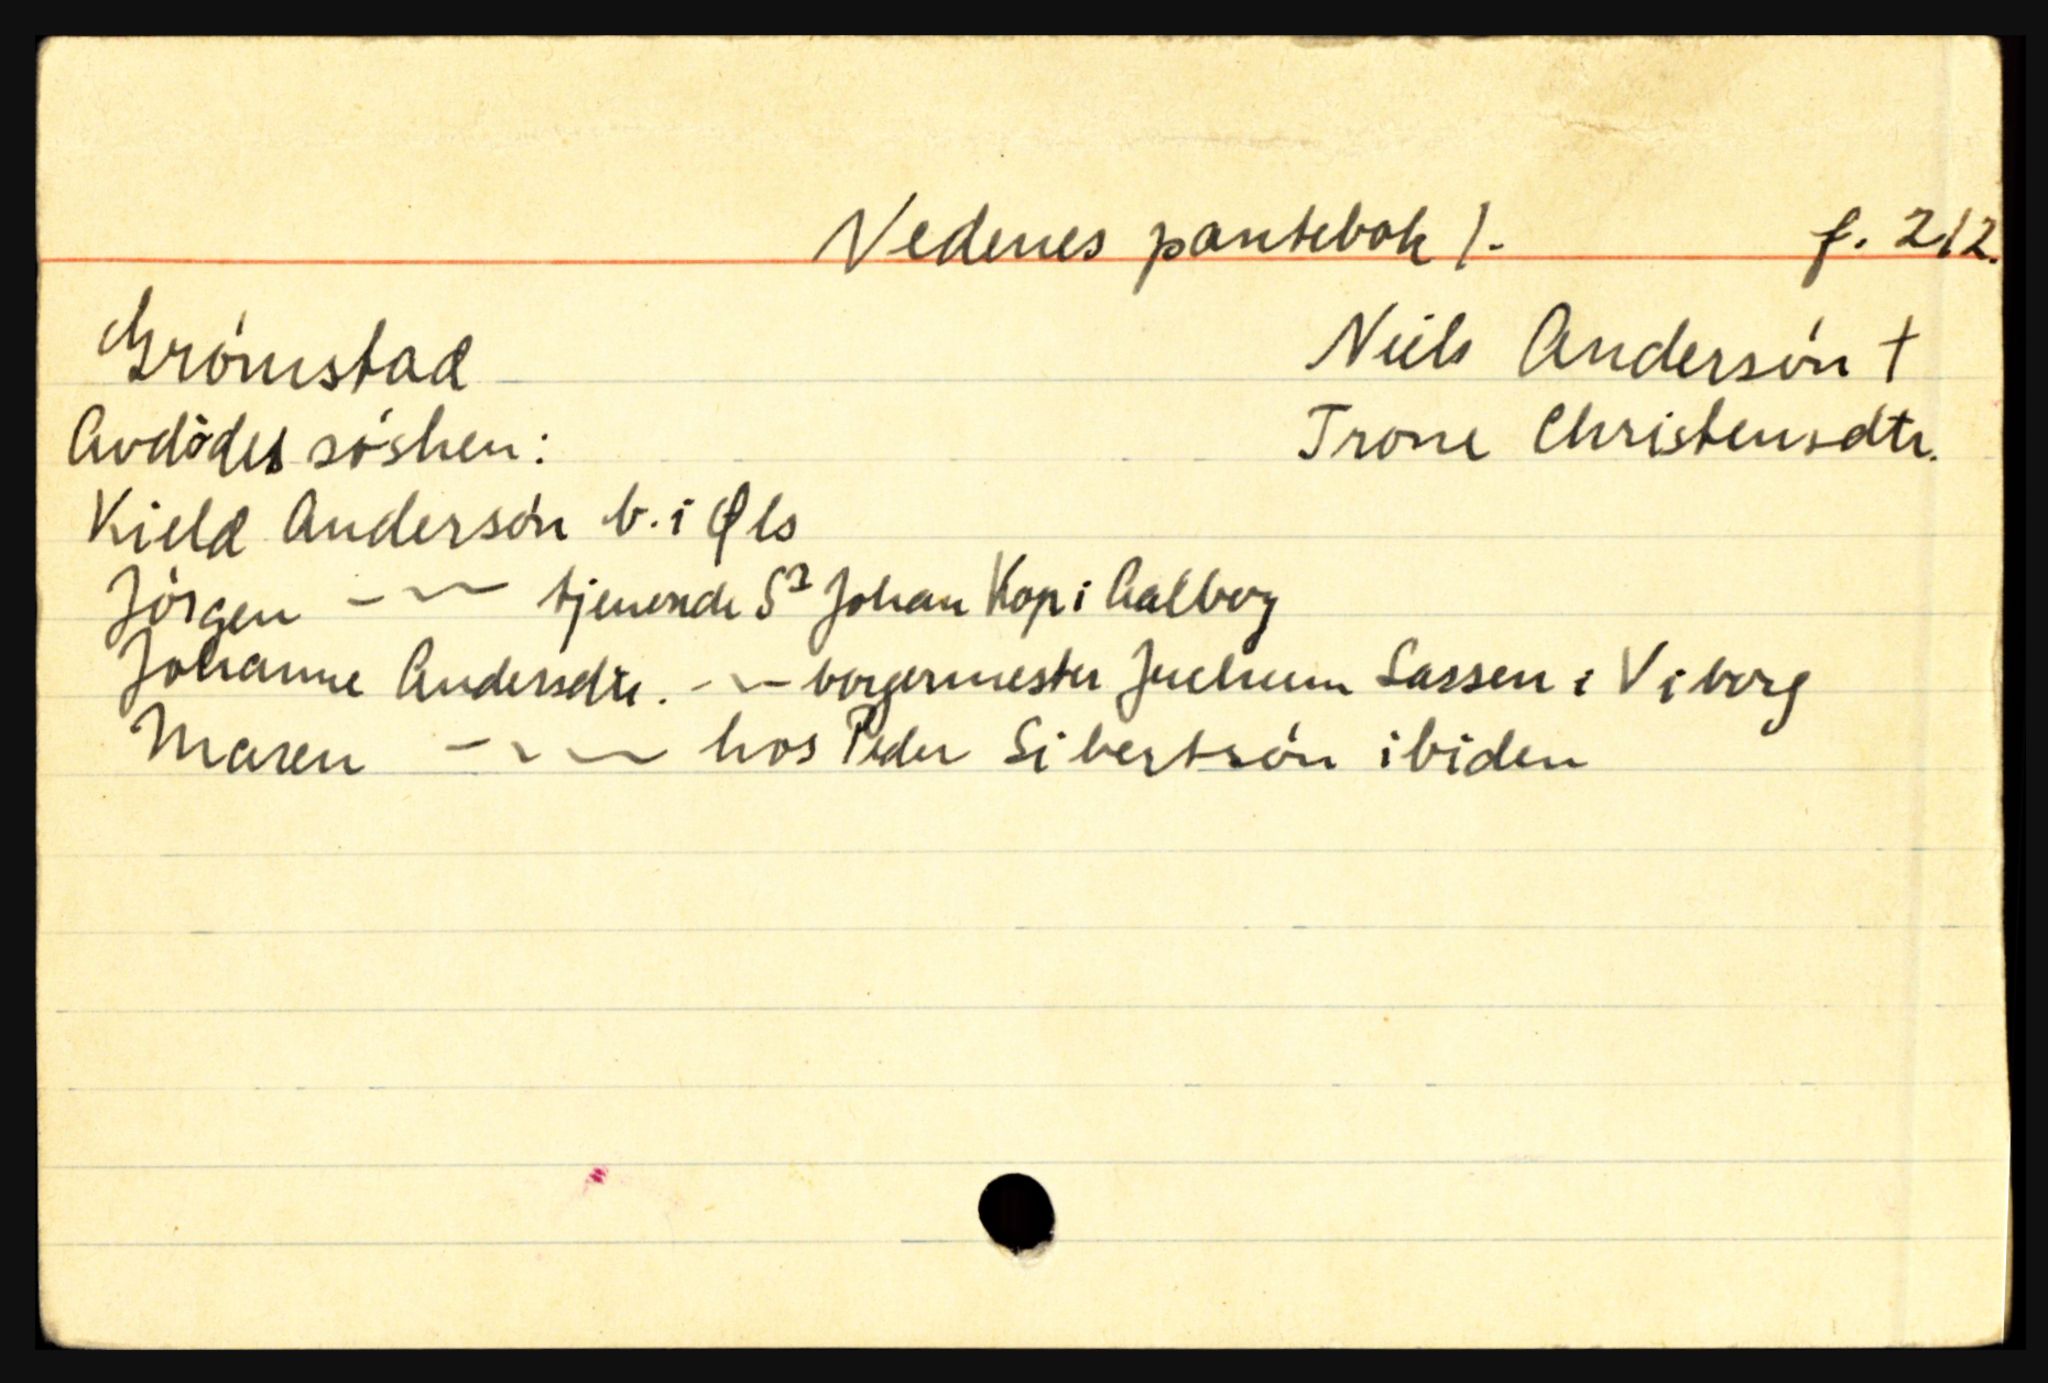 Nedenes pantebok 1. f. 212.
Grómstad Niels Andersón †
Avdödes sósken: Trone Christensdtr.
Kield Andersón b. i Øls
Jórgen - ~ ~ tjenende Sr Johan Kop i Aalborg
Johanne Andersdtr. - ~ - borgermester Juchum Sassen i Viborg
Maren - ~ ~ ~ hos Peder Sibertsón ibiden